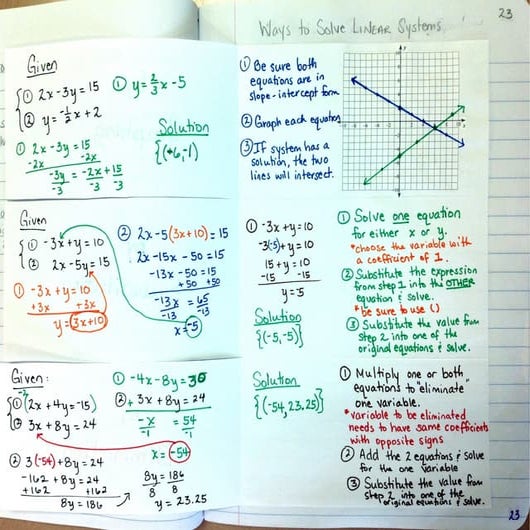 23
Ways to Solve LINEAR Systems
Given
① 2x - 3y = 15
② y = -1/2 x + 2
① y = 2/3 x - 5
① 2x - 3y = 15
-2x -2x
-3y = -2x + 15
-3 -3 -3
Solution
{(6,-1)}
① Be sure both
equations are in
slope-intercept form
② Graph each equation
③ If system has a
solution, the two
lines will intersect.
Given
① -3x + y = 10
② 2x - 5y = 15
① -3x + y = 10
+3x +3x
y = 3x+10
② 2x - 5(3x+10) = 15
2x - 15x - 50 = 15
-13x - 50 = 15
+50 +50
-13x = 65
-13 -13
x = -5
① -3x + y = 10
-3(-5) + y = 10
15 + y = 10
-15 -15
y = -5
Solution
{(-5,-5)}
① Solve one equation
for either x or y.
*choose the variable with
a coefficient of 1.
② Substitute the expression
from step 1 into the OTHER
equation & solve.
*be sure to use ()
③ Substitute the value from
step 2 into one of the
original equations & solve.
Given:
-2
① (2x + 4y = -15)
② 3x + 8y = 24
① -4x - 8y = 30
② + 3x + 8y = 24
-x = 54
-1 -1
x = -54
② 3(-54) + 8y = 24
-162 + 8y = 24
+162 +162
8y = 186
8y = 186
8 8
y = 23.25
Solution
{(-54, 23.25)}
① Multiply one or both
equations to "eliminate"
one variable.
*variable to be eliminated
needs to have same coefficients
with opposite signs
② Add the 2 equations & solve
for the one variable
③ Substitute the value from
step 2 into one of the
original equations & solve.
23